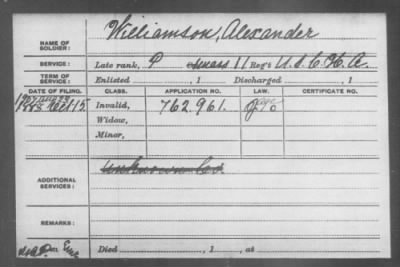 NAME OF SOLDIER: Williamson, Alexander
SERVICE: Late rank, P 11 Reg't U.S.C.H.A.
TERM OF SERVICE: Enlisted , 1 Discharged , 1
DATE OF FILING. CLASS. APPLICATION NO. LAW. CERTIFICATE NO.
15 Invalid, 762.961.
Widow,
Minor,
ADDITIONAL SERVICES: unknown Co.
REMARKS:
Died , 1 , at